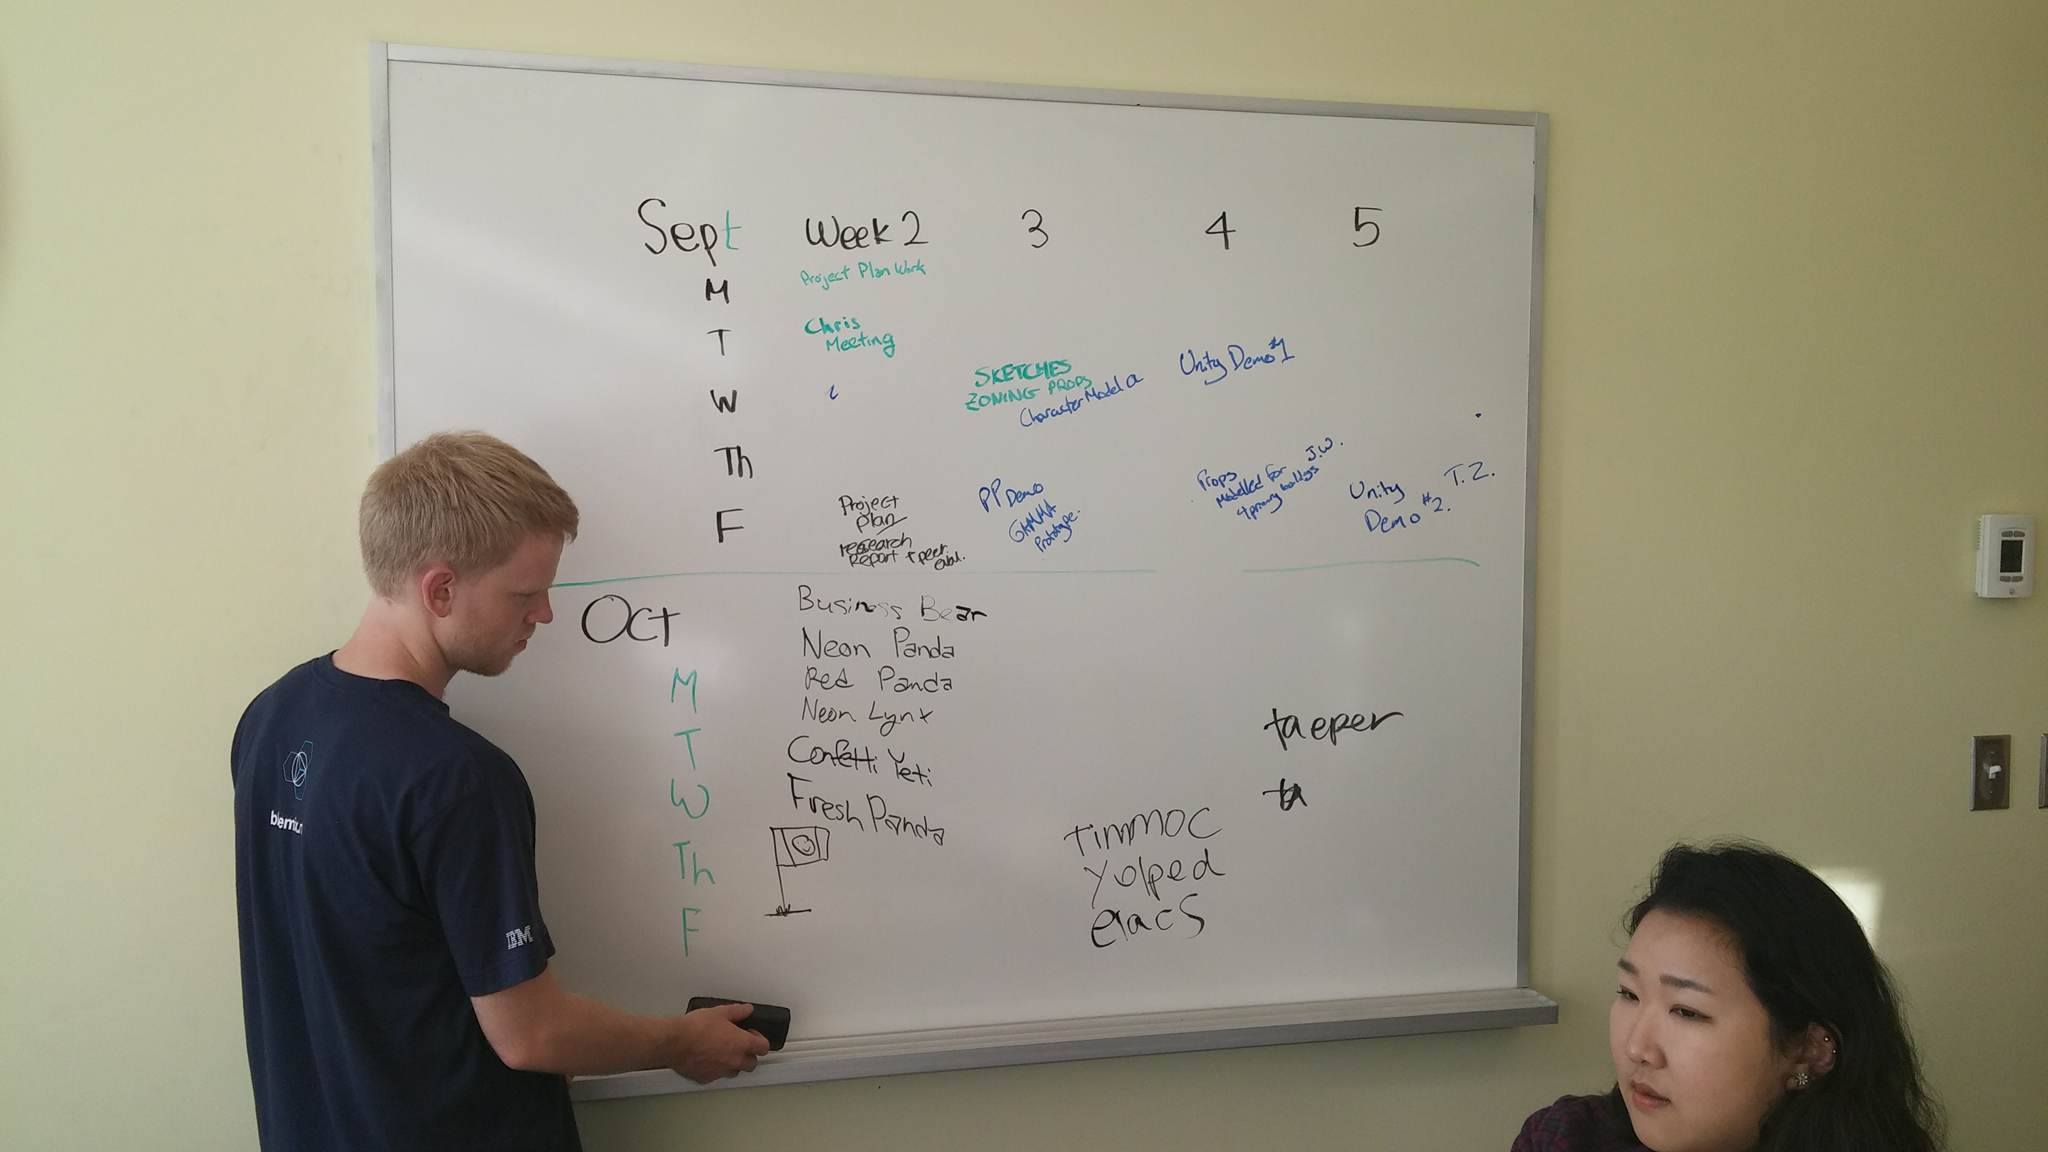 Sept Week 2 3 4 5
M Project Plan Work
T Chris
Meeting
W
SKETCHES
ZONING PROPS
Character Model a
Unity Demo #1
Th
F Project
plan
research
Report + peer
eval.
PP Demo
GAMMA
Prototype.
Props J.W.
Modelled for
4 primary
Unity T.Z.
Demo #2.
Oct
Business Bear
Neon Panda
Red Panda
Neon Lynx
Confetti Yeti
Fresh Panda
M
T
W
Th
F
taeper
ta
timmoc
yolped
elacs
IBM